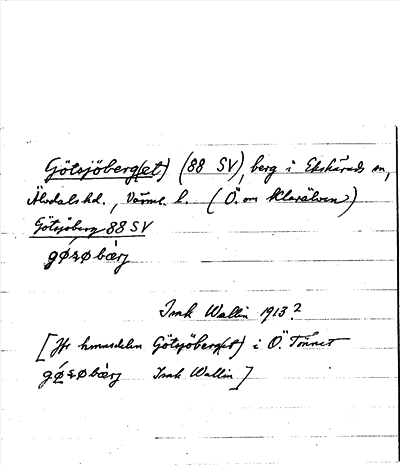 Götsjöberg(et) (88 SV), berg i Ekshärads sn,
Älvdals hd., Värml. l. (Ö. om Klarälven)
Götsjöberg 88 SV
Isak Wallin 1913?
[Jfr hmansdelen Götsjöberg(et) i Ö. Tönnet
Isak Wallin]